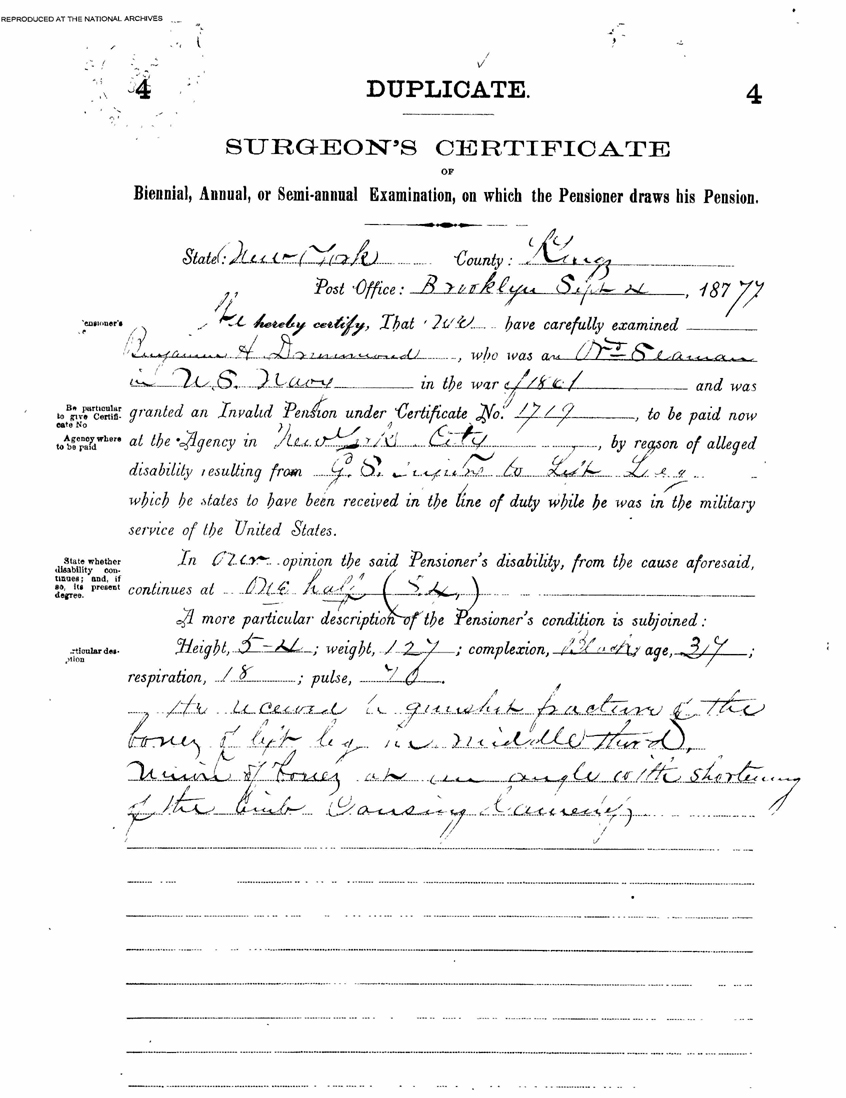 REPRODUCED AT THE NATIONAL ARCHIVES
4 DUPLICATE. 4
SURGEON'S CERTIFICATE
OF
Biennial, Annual, or Semi-annual Examination, on which the Pensioner draws his Pension.
State: New York County: Kings
Post Office: Brooklyn Sept 4, 18777
We hereby certify, That we have carefully examined
Benjamin H Drummond, who was an Ord Seaman
in U.S. Navy in the war of 1861 and was
Be particular to give Certificate No
granted an Invalid Pension under Certificate No. 1719, to be paid now
Agency where to be paid
at the Agency in New York City, by reason of alleged
disability resulting from G.S. injury to Left Leg
which he states to have been received in the line of duty while he was in the military
service of the United States.
State whether disability continues; and, if so, its present degree.
In our opinion the said Pensioner's disability, from the cause aforesaid,
continues at one half
A more particular description of the Pensioner's condition is subjoined:
Height, 5-4; weight, 127; complexion, Black; age, 37;
respiration, 18; pulse, 70.
He received a gunshot fracture of the
bones of left leg in middle third,
Union of bones at an angle with shortening
of the limb Causing Lameness